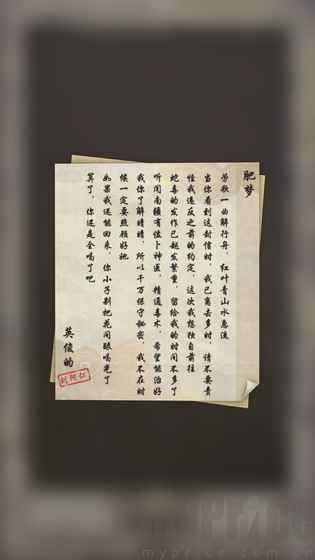 肥梦
劳歌一曲解行舟，红叶青山水急流
当你看到这封信时，我已离去多时，请不要责
怪我违反之前的约定，这次我想独自前往
蛇毒的发作已越发繁重，留给我的时间不多了
听闻南疆有位卜神医，精通毒术，希望能治好
我你了解晴晴，所以千万保守秘密，我不在时
候一定要照顾好她
如果我还能回来，你小子别把花间眼喝光了
算了，你还是全喝了吧
英俊的
myprice
myprice.com.cn